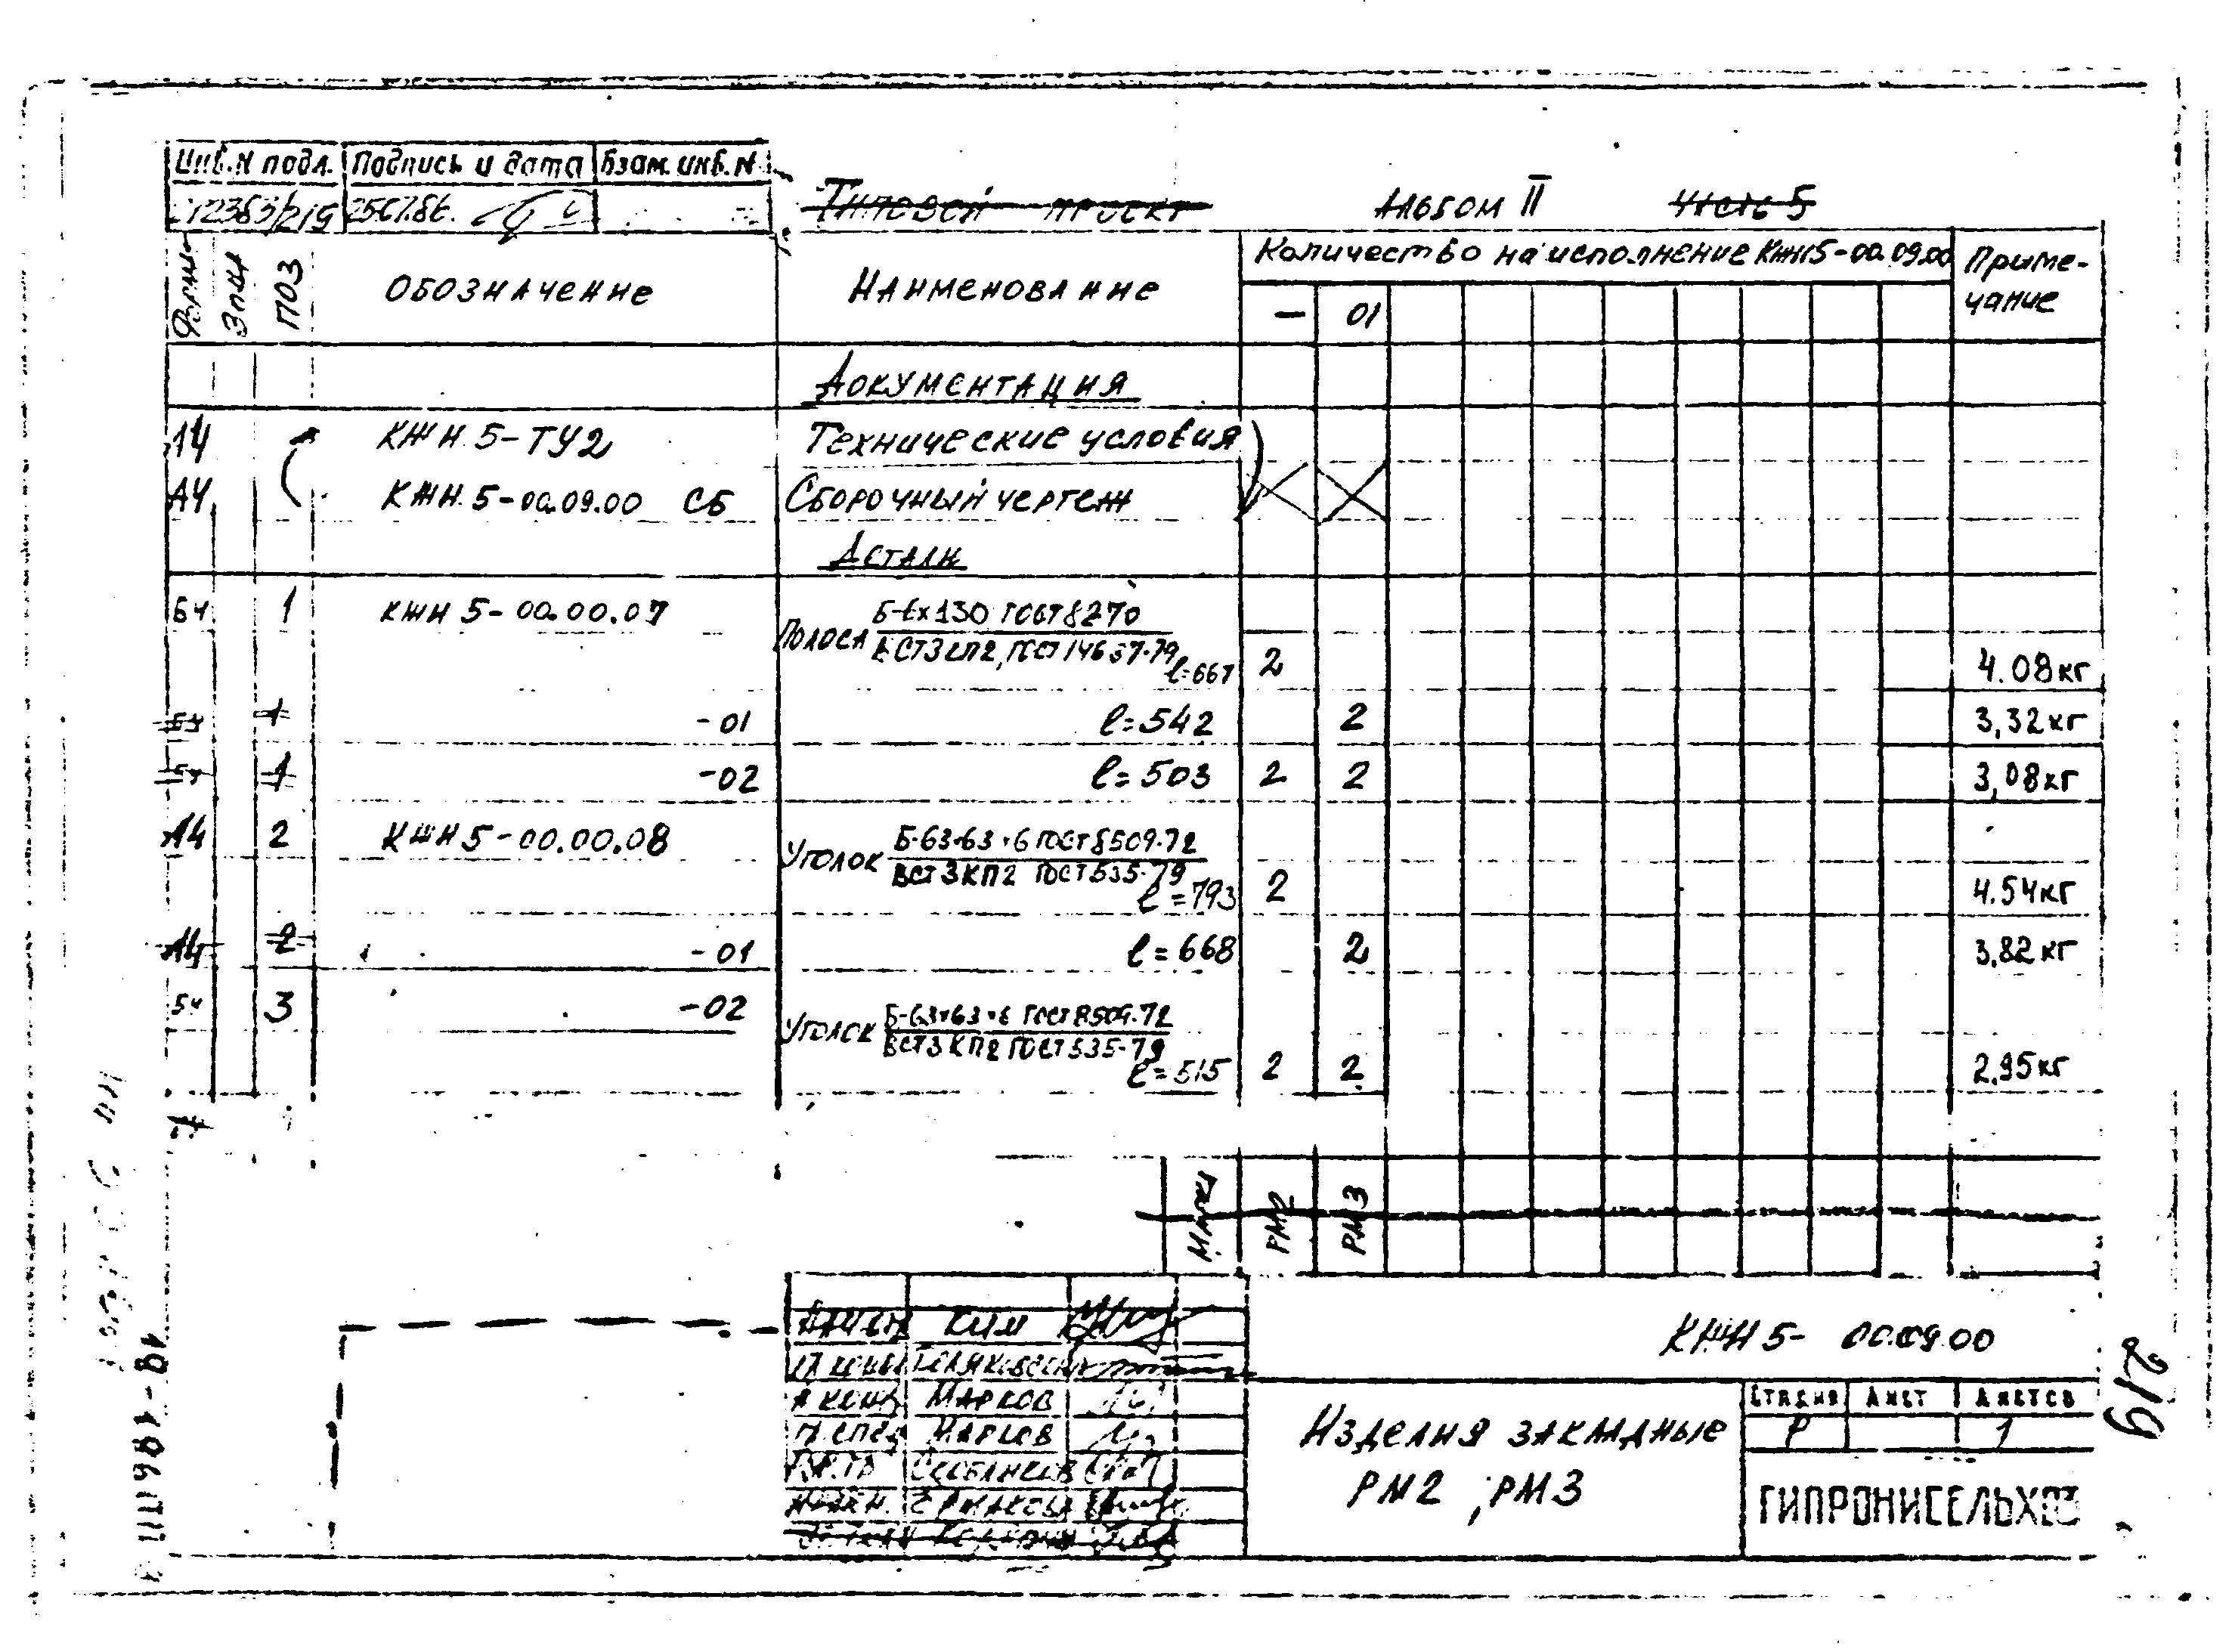 Инв.N подл. Подпись и дата Взам. инв. N
Типовой проект Альбом II Часть 5
Зона ПОЗ Обозначение Наименование Количество на исполнение КЖН5-00.09.00 Приме-
чание
— 01
Документация
КЖН 5-ТУ2 Технические условия
А4 КЖН 5-00.09.00 СБ Сборочный чертеж
Детали
БЧ 1 КЖН 5-00.00.07 Полоса Б-6х130 ГОСТ 8270
ВСТ3КП2, ГОСТ 14637-79
l=667 2 4.08кг
БЧ 1 -01 l=542 2 3,32кг
БЧ 1 -02 l=503 2 2 3,08кг
А4 2 КЖН 5-00.00.08 Уголок Б-63×63×6 ГОСТ 8509-72
ВСТ3КП2 ГОСТ 535-79
l=793 2 4.54кг
А4 2 -01 l=668 2 3.82кг
БЧ 3 -02 Уголок Б-63×63×6 ГОСТ 8509-72
ВСТ3КП2 ГОСТ 535-79
l=515 2 2 2.95кг
Марка РМ2 РМ3
Ким
КЖН 5- 00.09.00
Марков
Изделия закладные
РМ2, РМ3
Стадия Лист Листов
Р 1
ГИПРОНИСЕЛЬХОЗ
219